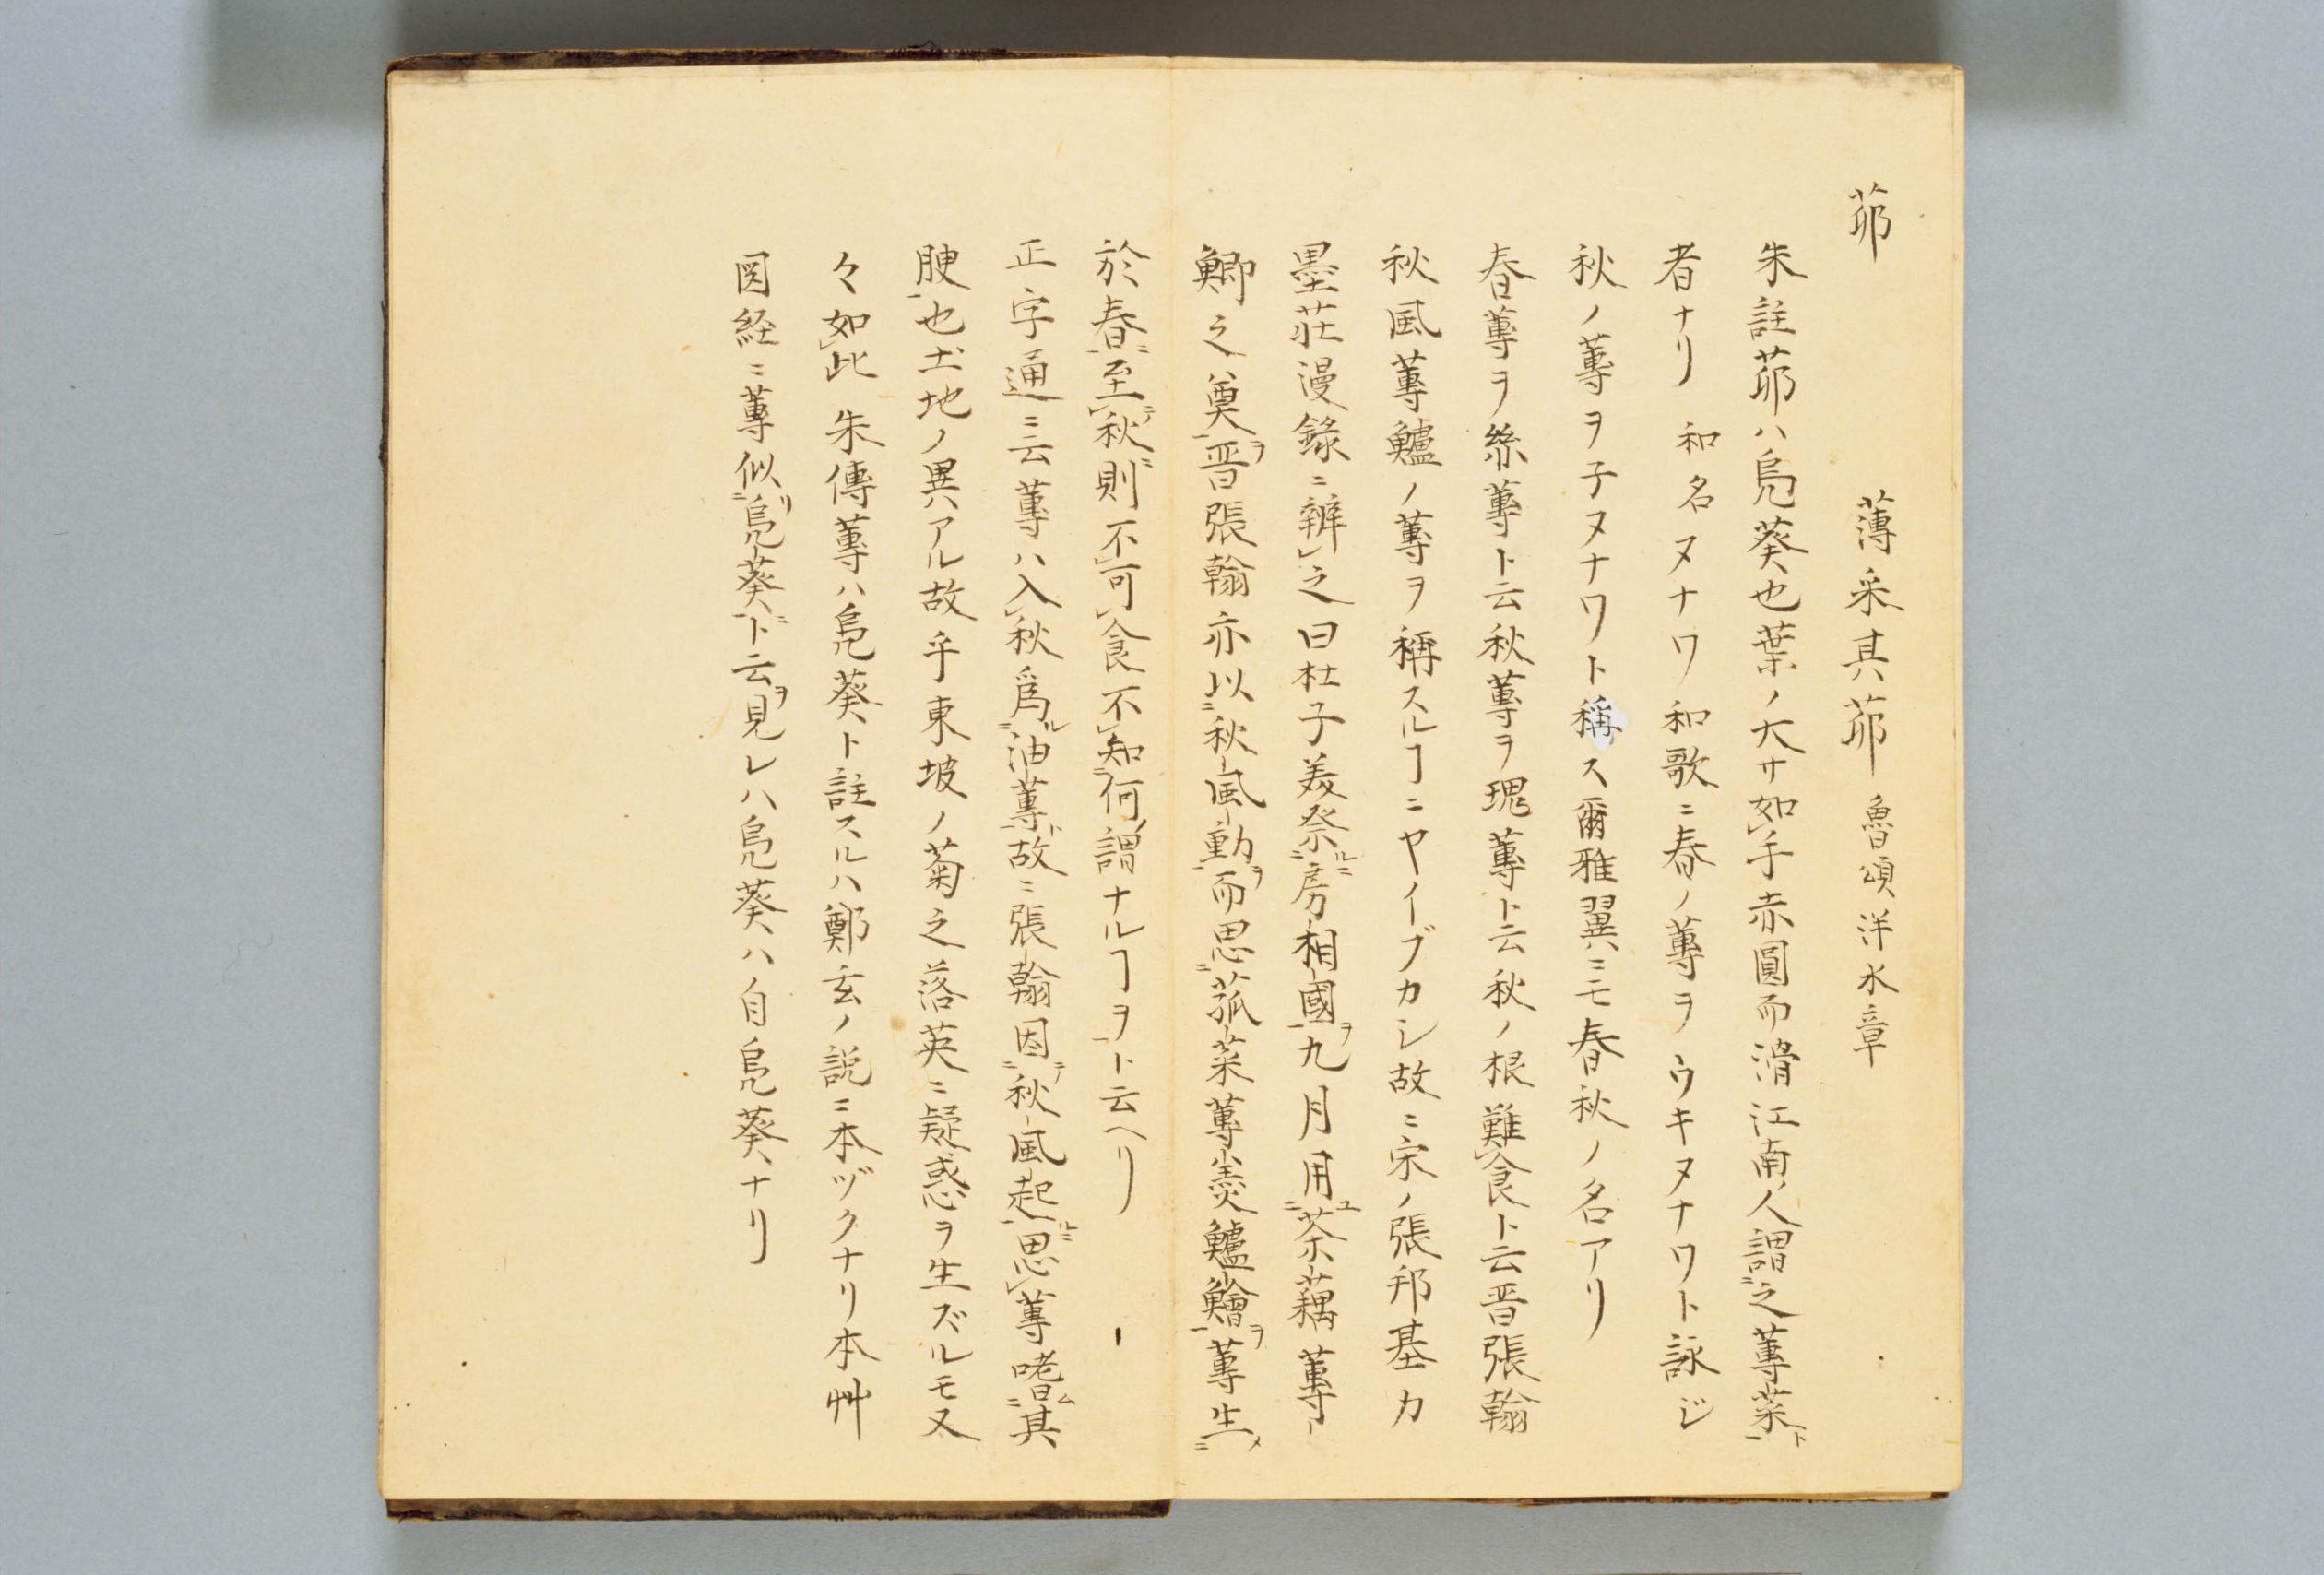 茆
薄采其茆 魯頌泮水章
朱註茆ハ鳧葵也葉ノ大サ如手赤圓而滑江南人謂之蓴菜ト
者ナリ 和名ヌナワ和歌ニ春ノ蓴ヲウキヌナワト詠ジ
秋ノ蓴ヲ子ヌナワト稱ス爾雅翼ニモ春秋ノ名アリ
春蓴ヲ絲蓴ト云秋蓴ヲ瑰蓴ト云秋ノ根難食ト云晋張翰
秋風蓴鱸ノ蓴ヲ稱スルヿニヤイブカシ故ニ宋ノ張邦基カ
墨荘漫錄ニ辨之曰杜子美祭ルニ房相國ヲ九月用ユ茶藕蓴
鯽之奠ヲ晋張翰亦以秋風動ヲ而思菰菜蓴羮鱸鱠ヲ蓴生メ
於春ニ至テ秋ニ則不可食不知何ノ謂ナルヿヲト云ヘリ
正字通ニ云蓴ハ入秋爲ル油蓴ト故ニ張翰因テ秋風起ルニ思蓴嗜ム其
腴也土地ノ異アル故乎東坡ノ菊之落英ニ疑惑ヲ生ズルモ又
々如此 朱傳蓴ハ鳧葵ト註スルハ鄭玄ノ説ニ本ヅクナリ本艸
図経ニ蓴似リ鳧葵ニト云ヲ見レハ鳧葵ハ自鳧葵ナリ